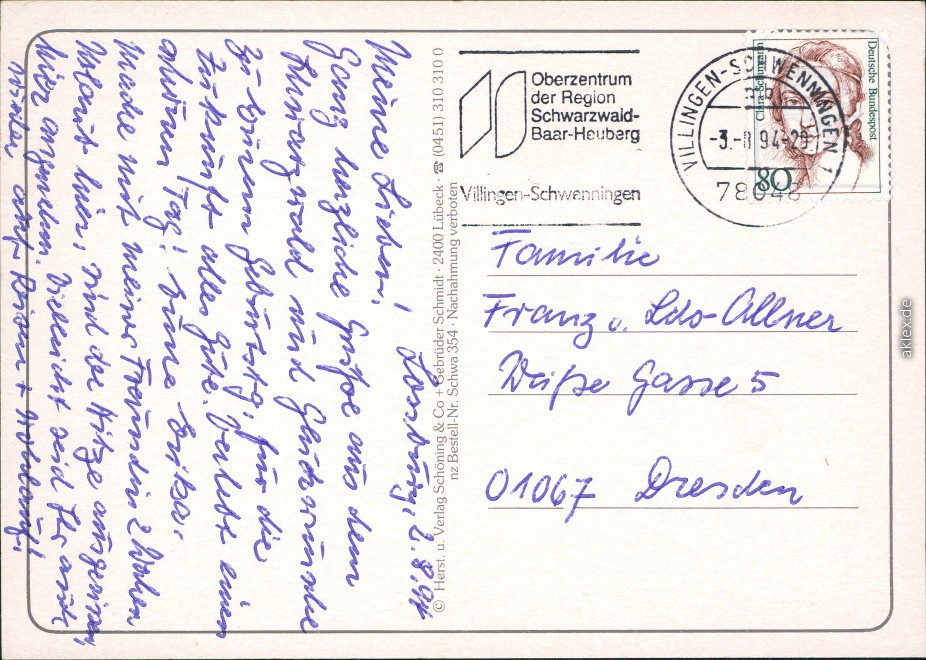 Lossburg, 2.8.94
Meine Lieben!
Ganz herzliche Grüße aus dem
Schwarzwald und Glückwünsche
zu Einem Geburtstg, für die
Zukunft alles Gute. Verlebt einen
schönen Tag! Eure Erika.
Mache mit meiner Freundin 2 Wochen
Urlaub hier, sind der Hitze ausgerissen,
hier angenehm. Vielleicht seid Ihr auch
wieder auf Reisen +
© Herst. u. Verlag Schöning & Co + Gebrüder Schmidt · 2400 Lübeck · ☎ (0451) 310 310 0
nz Bestell-Nr. Schwa 354 · Nachahmung verboten
Oberzentrum
der Region
Schwarzwald-
Baar-Heuberg
Villingen-Schwenningen
VILLINGEN-SCHWENNINGEN 1
-3.-8.94-20
78048
Clara Schumann
Deutsche Bundespost
80
Familie
Franz u. Udo Allner
Weiße Gasse 5
01067 Dresden
aklex.de